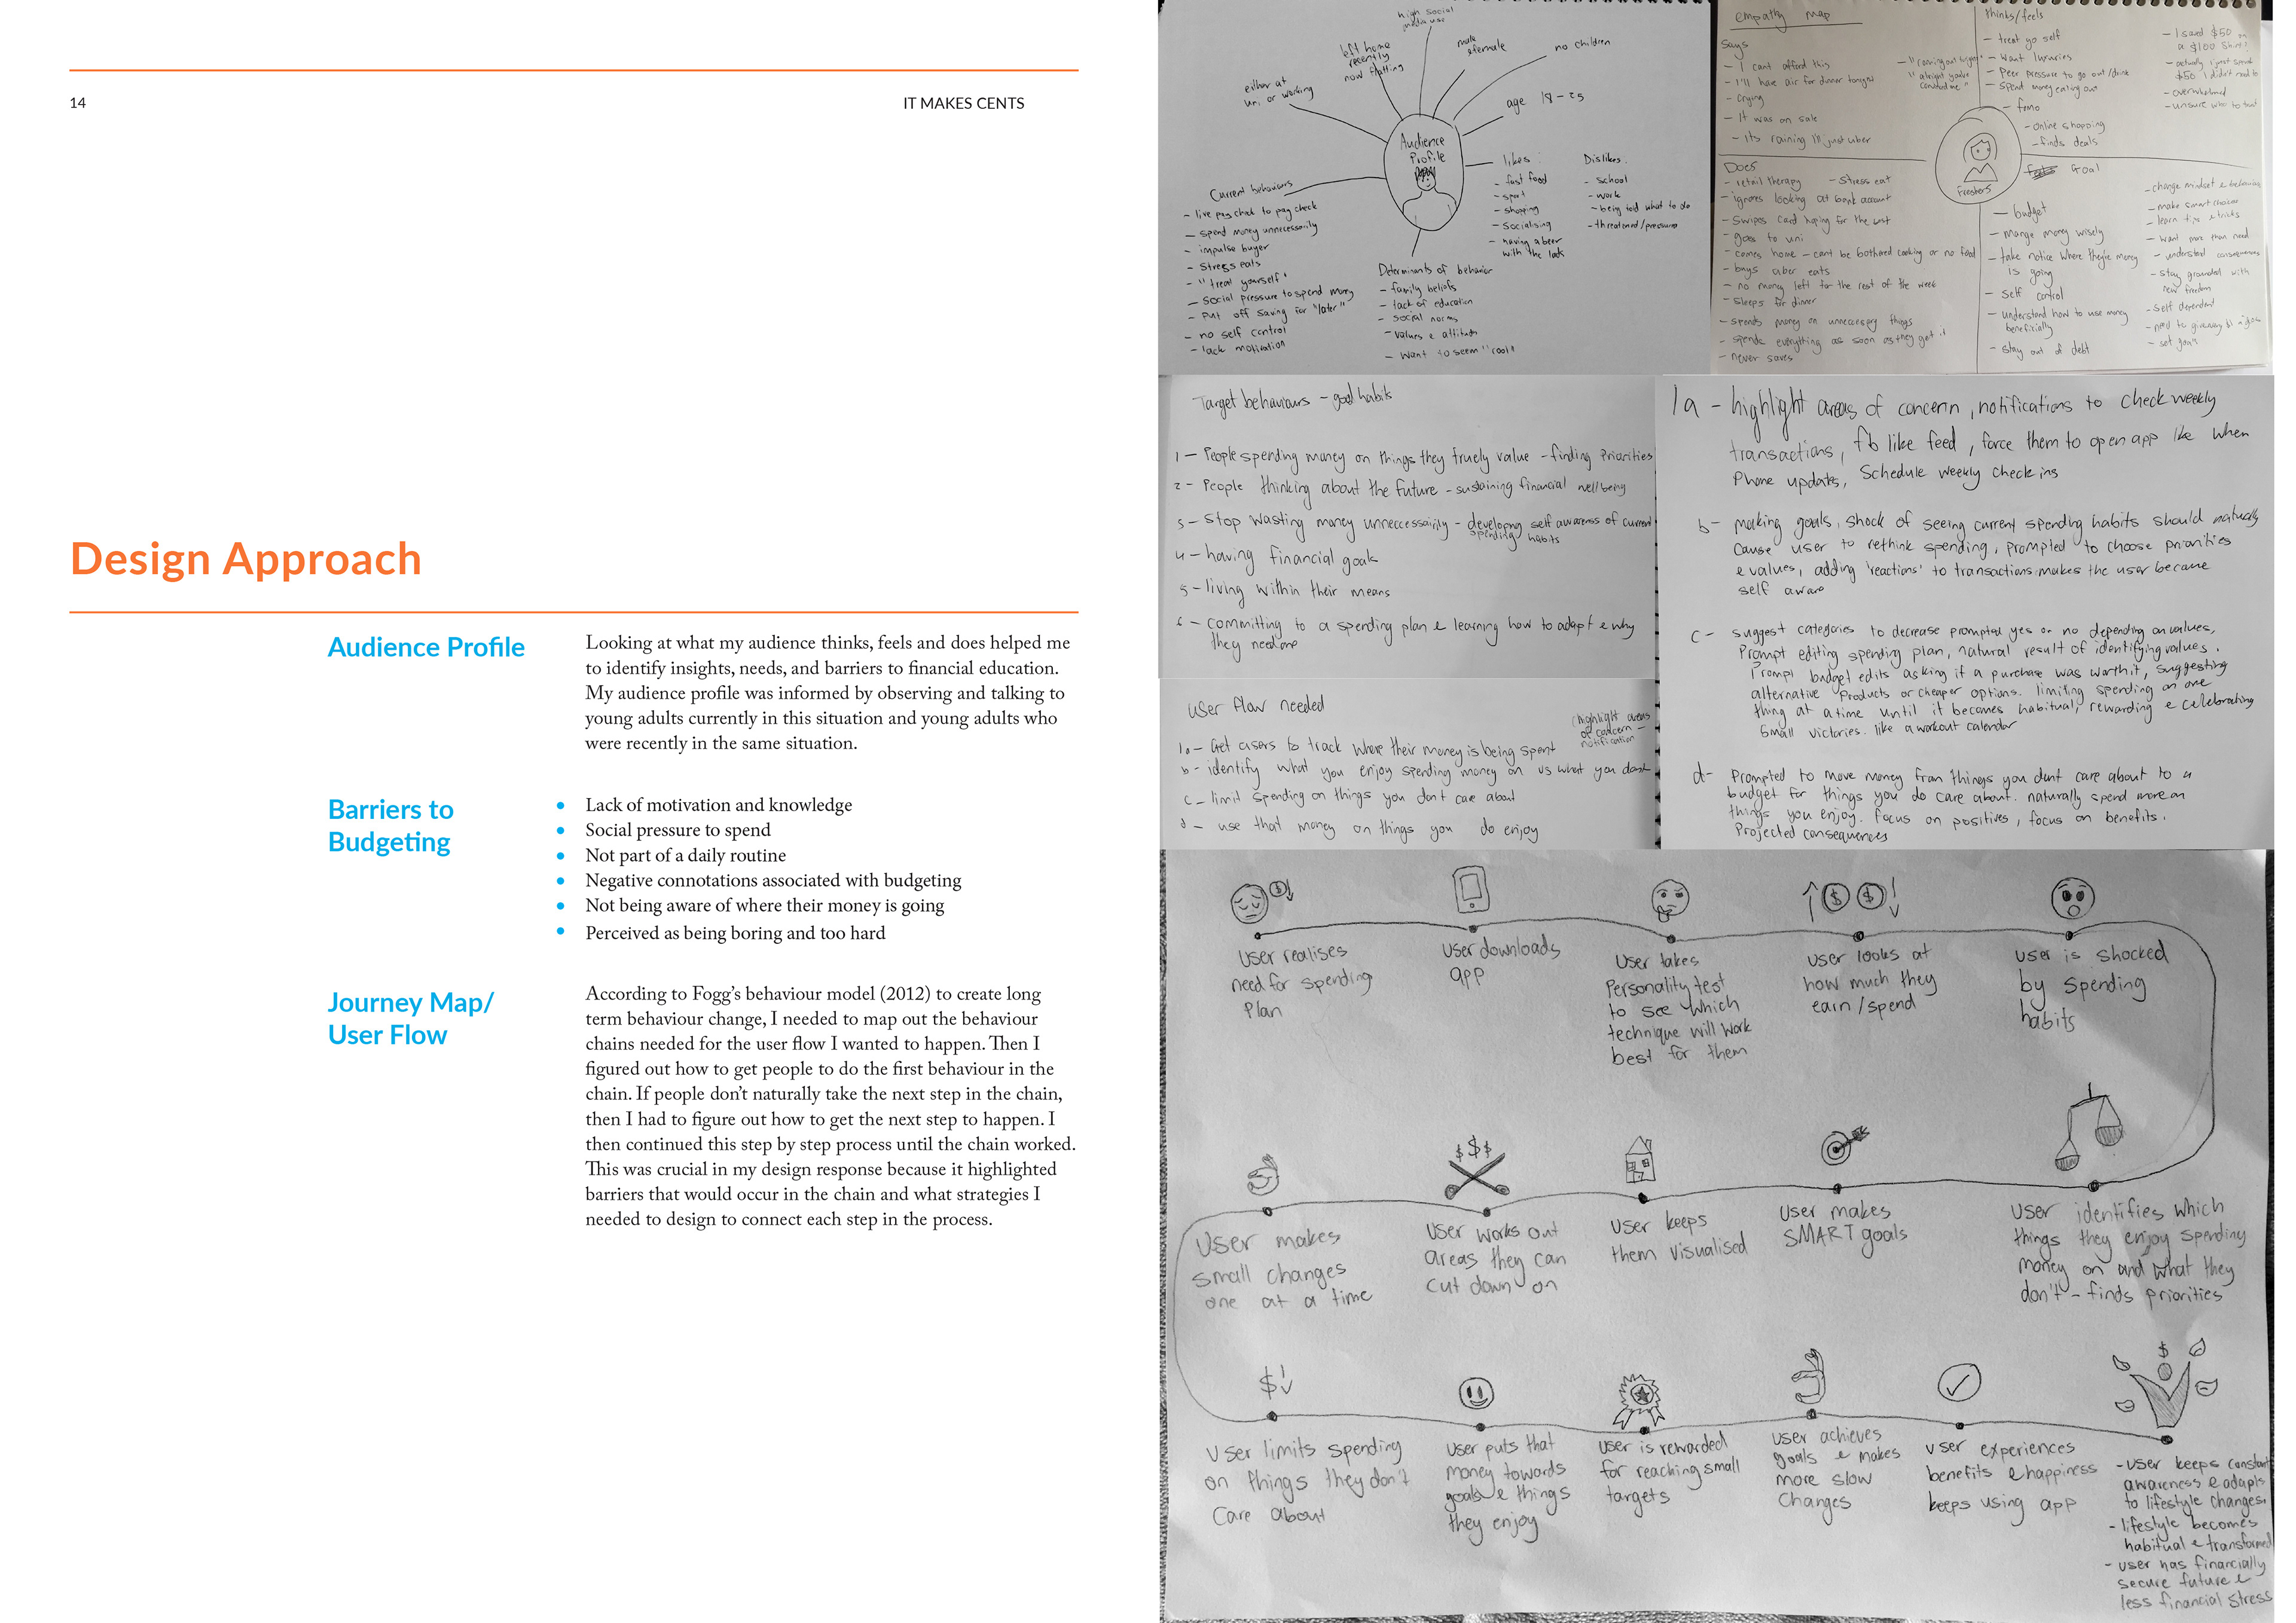 14
IT MAKES CENTS
Design Approach
Audience Profile
Looking at what my audience thinks, feels and does helped me
to identify insights, needs, and barriers to financial education.
My audience profile was informed by observing and talking to
young adults currently in this situation and young adults who
were recently in the same situation.
Barriers to
Budgeting
• Lack of motivation and knowledge
• Social pressure to spend
• Not part of a daily routine
• Negative connotations associated with budgeting
• Not being aware of where their money is going
• Perceived as being boring and too hard
Journey Map/
User Flow
According to Fogg's behaviour model (2012) to create long
term behaviour change, I needed to map out the behaviour
chains needed for the user flow I wanted to happen. Then I
figured out how to get people to do the first behaviour in the
chain. If people don't naturally take the next step in the chain,
then I had to figure out how to get the next step to happen. I
then continued this step by step process until the chain worked.
This was crucial in my design response because it highlighted
barriers that would occur in the chain and what strategies I
needed to design to connect each step in the process.
high social
media use
left home
recently
now flatting
male
&female
no children
either at
uni or working
age 18-25
Audience
Profile
Current behaviours
- live pay check to pay check
- spend money unnecessarily
- impulse buyer
- Stress eats
- "treat yourself"
- social pressure to spend money
- put off saving for "later"
- no self control
- lack motivation
likes:
- fast food
- sport
- shopping
- socialising
- having a beer
with the lads
Dislikes:
- school
- work
- being told what to do
- threatened/pressured
Determinants of behavior
- family beliefs
- lack of education
- social norms
- values & attitudes
- want to seem "cool"
empathy map
Says
- I cant afford this
- I'll have air for dinner tonight
- crying
- It was on sale
- Its raining I'll just uber
thinks/feels
- treat yo self
- Want luxuries
- Peer pressure to go out/drink
- spend money eating out
- fomo
- online shopping
- finds deals
- I saved $50 on
a $100 shirt?
- actually I just spent
$50 I didn't need to
- overwhelmed
- unsure who to trust
Freshers
Does
- retail therapy
- Stress eat
- ignores looking at bank account
- Swipes card hoping for the best
- goes to uni
- comes home - cant be bothered cooking or no food
- buys uber eats
- no money left for the rest of the week
- sleeps for dinner
- spends money on unneccesary things
- spends everything as soon as they get it
- never saves
Goal
- budget
- mange money wisely
- take notice where they're money
is going
- self control
- understand how to use money
beneficially
- stay out of debt
- change mindset & behaviour
- make smart choices
- learn tips & tricks
- want more than need
- understand consequences
- stay grounded with
new freedom
- self dependent
- set goals
Target behaviours - good habits
1 - People spending money on things they truely value - finding Priorities
2 - People thinking about the future - sustaining financial wellbeing
3 - Stop wasting money unneccessairily - developng self awareness of current
spending habits
4 - having financial goals
5 - living within their means
6 - committing to a spending plan & learning how to adapt & why
they need one
User flow needed
(highlight areas
of concern -
notification
1a - Get users to track where their money is being spent
b - identify what you enjoy spending money on vs what you dont
c - limit spending on things you don't care about
d - use that money on things you do enjoy
1a - highlight areas of concern, notifications to check weekly
transactions, fb like feed, force them to open app like when
Phone updates, Schedule weekly check ins
b - making goals, shock of seeing current spending habits should naturally
cause user to rethink spending, prompted to choose priorities
& values, adding 'reactions' to transactions makes the user became
self aware
c - suggest categories to decrease prompted yes or no depending on values,
Prompt editing spending plan, natural result of identifying values.
Prompt budget edits asking if a purchase was worth it, suggesting
alternative products or cheaper options. limiting spending on one
thing at a time until it becomes habitual, rewarding & celebrating
small victories. like a workout calendar
d - Prompted to move money from things you dont care about to a
budget for things you do care about. naturally spend more on
things you enjoy. focus on positives, focus on benefits.
Projected consequences
User realises
need for spending
plan
User downloads
app
User takes
Personality test
to see which
technique will work
best for them
user looks at
how much they
earn/spend
user is shocked
by spending
habits
User identifies which
things they enjoy spending
money on and what they
don't - finds priorities
User makes
SMART goals
User keeps
them visualised
User works out
areas they can
cut down on
User makes
small changes
one at a time
User limits spending
on things they don't
care about
User puts that
money towards
goals & things
they enjoy
User is rewarded
for reaching small
targets
User achieves
goals & makes
more slow
changes
User experiences
benefits & happiness
keeps using app
- User keeps constant
awareness & adapts
to lifestyle changes.
- lifestyle becomes
habitual & transformed
- user has financially
secure future &
less financial stress